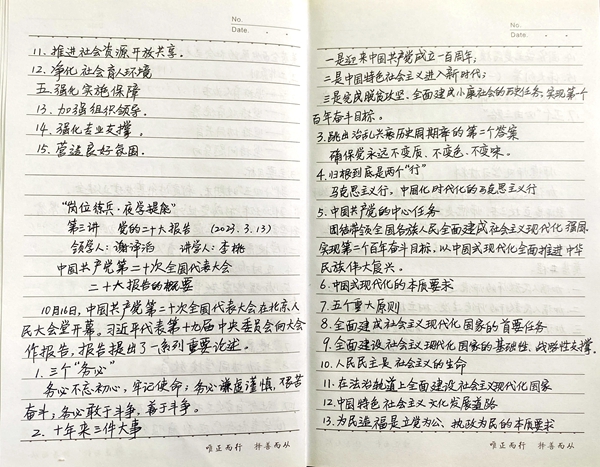 No.
Date.
11. 推进社会资源开放共享.
12. 净化社会育人环境
五. 强化实施保障
13. 加强组织领导.
14. 强化专业支撑.
15. 营造良好氛围.
"岗位练兵·夜学提能"
第三讲 党的二十大报告 (2023.3.13)
领学人: 谢泽治 讲学人: 李桃
中国共产党第二十次全国代表大会
二十大报告的概要
10月16日, 中国共产党第二十次全国代表大会在北京人
民大会堂开幕。习近平代表第十九届中央委员会向大会
作报告, 报告提出了一系列重要论述。
1. 三个"务必"
务必不忘初心, 牢记使命; 务必谦虚谨慎, 艰苦
奋斗; 务必敢于斗争, 善于斗争。
2. 十年来三件大事
唯正而行 择善而从
No.
Date.
一是迎来中国共产党成立一百周年;
二是中国特色社会主义进入新时代;
三是完成脱贫攻坚、全面建成小康社会的历史任务, 实现第一个
百年奋斗目标。
3. 跳出治乱兴衰历史周期率的第二个答案
确保党永远不变质、不变色、不变味。
4. 归根到底是两个"行"
马克思主义行, 中国化时代化的马克思主义行
5. 中国共产党的中心任务
团结带领全国各族人民全面建成社会主义现代化强国、
实现第二个百年奋斗目标, 以中国式现代化全面推进中华
民族伟大复兴。
6. 中国式现代化的本质要求
7. 五个重大原则
8. 全面建成社会主义现代化国家的首要任务
9. 全面建设社会主义现代化国家的基础性、战略性支撑.
10. 人民民主是社会主义的生命
11. 在法治轨道上全面建设社会主义现代化国家
12. 中国特色社会主义文化发展道路
13. 为民造福是立党为公、执政为民的本质要求
唯正而行 择善而从